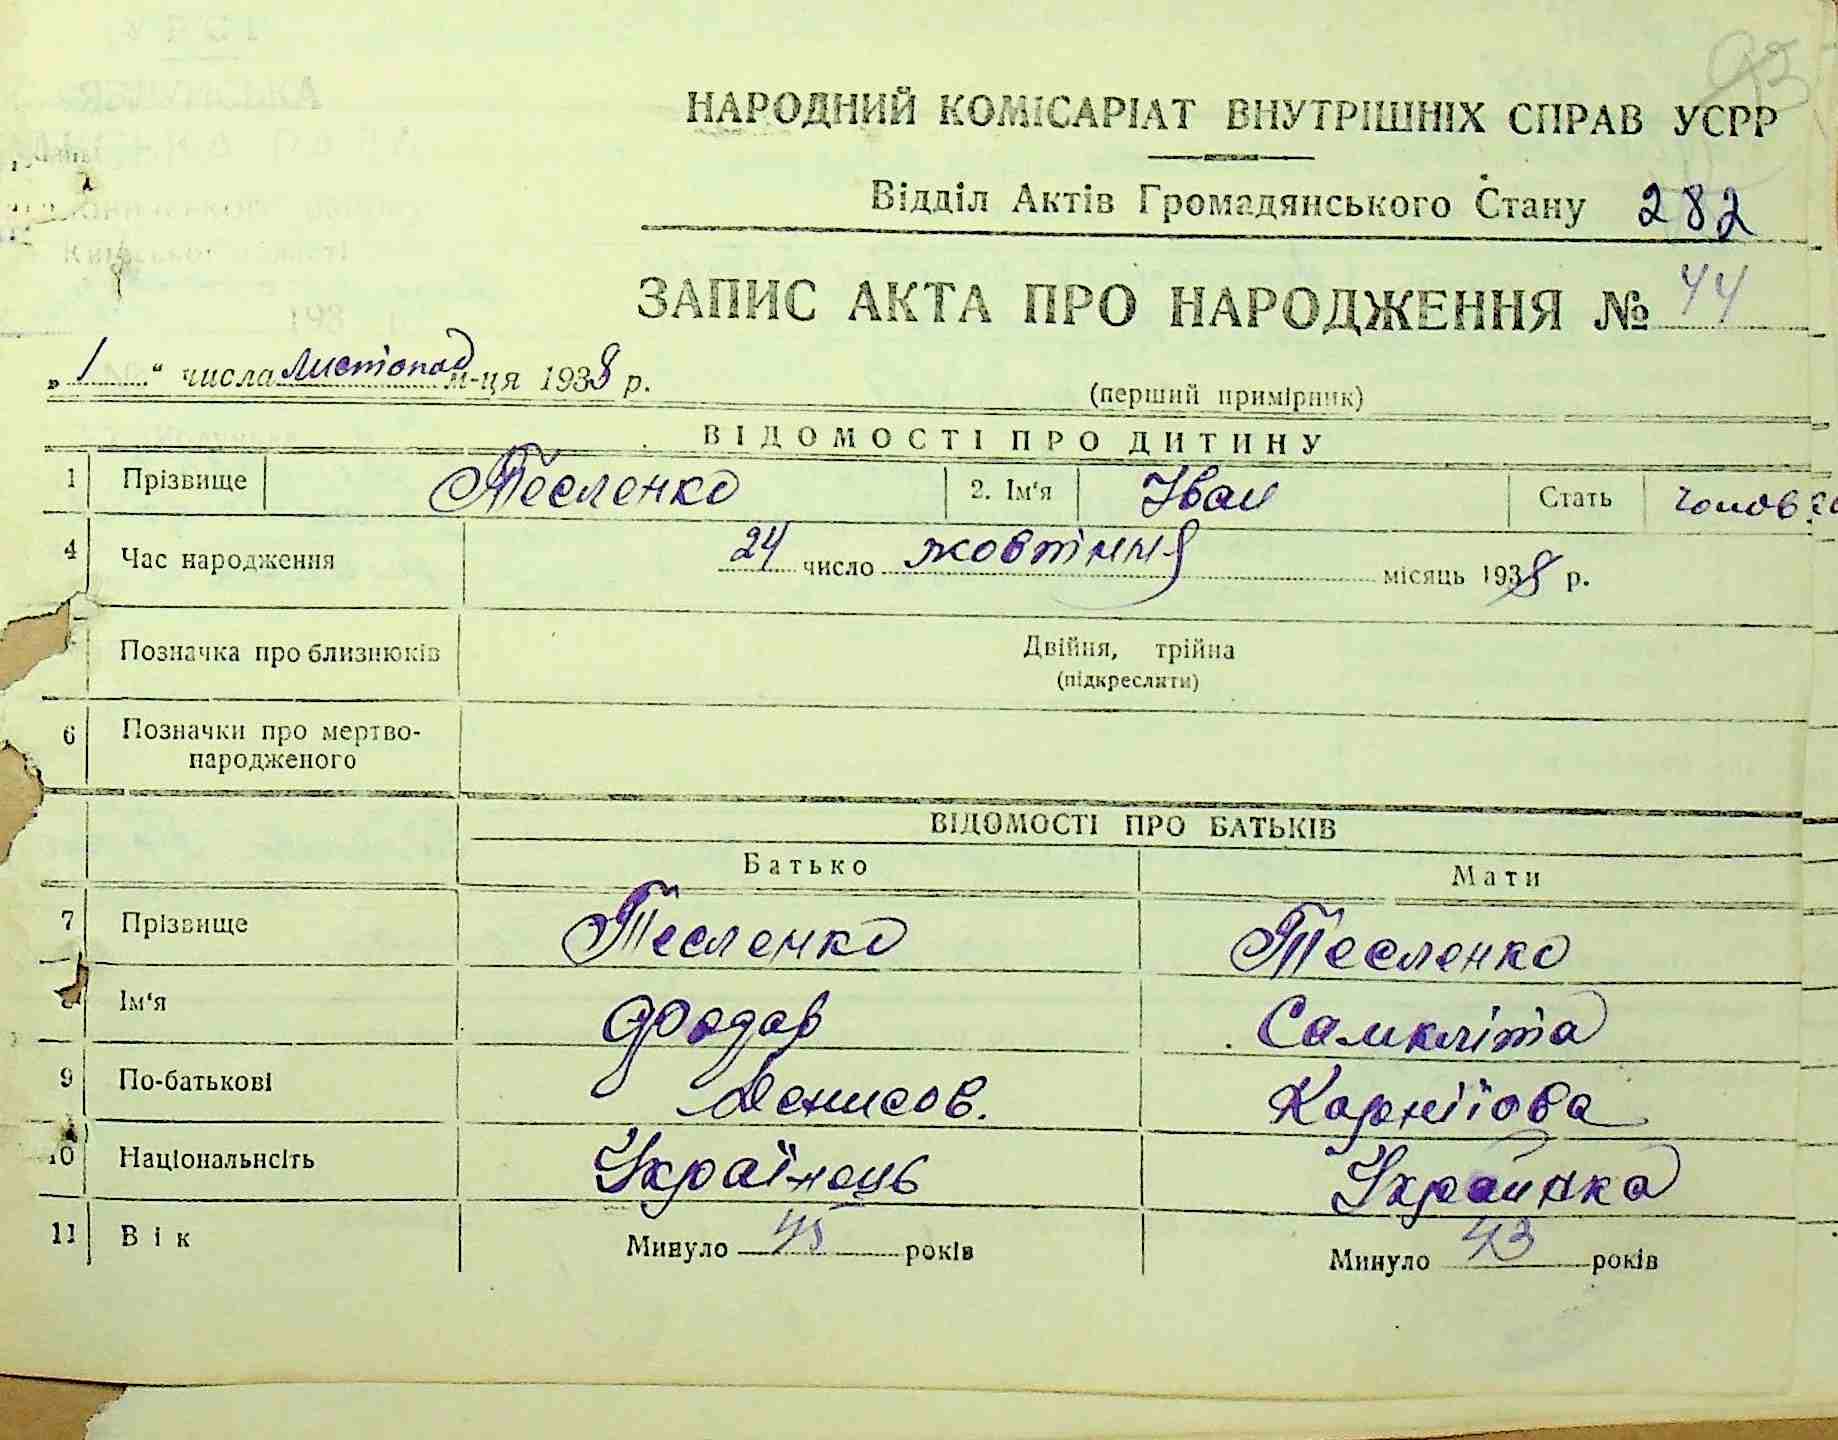 НАРОДНИЙ КОМІСАРІАТ ВНУТРІШНІХ СПРАВ УСРР
Відділ Актів Громадянського Стану 282
ЗАПИС АКТА ПРО НАРОДЖЕННЯ № 44
„1“ числа листопад м-ця 1938 р.
(перший примірник)
ВІДОМОСТІ ПРО ДИТИНУ
1 Прізвище Тесленко 2. Ім'я Іван Стать
4 Час народження 24 число жовтння місяць 1938 р.
Позначка про близнюків Двійня, трійна
(підкреслити)
6 Позначки про мертво-
народженого
ВІДОМОСТІ ПРО БАТЬКІВ
Батько Мати
7 Прізвище Тесленко Тесленко
Ім'я Фодар Самкліта
9 По-батькові Денисов. Карніїова
10 Національнсіть Українець Українка
11 Вік Минуло 45 років Минуло 43 років